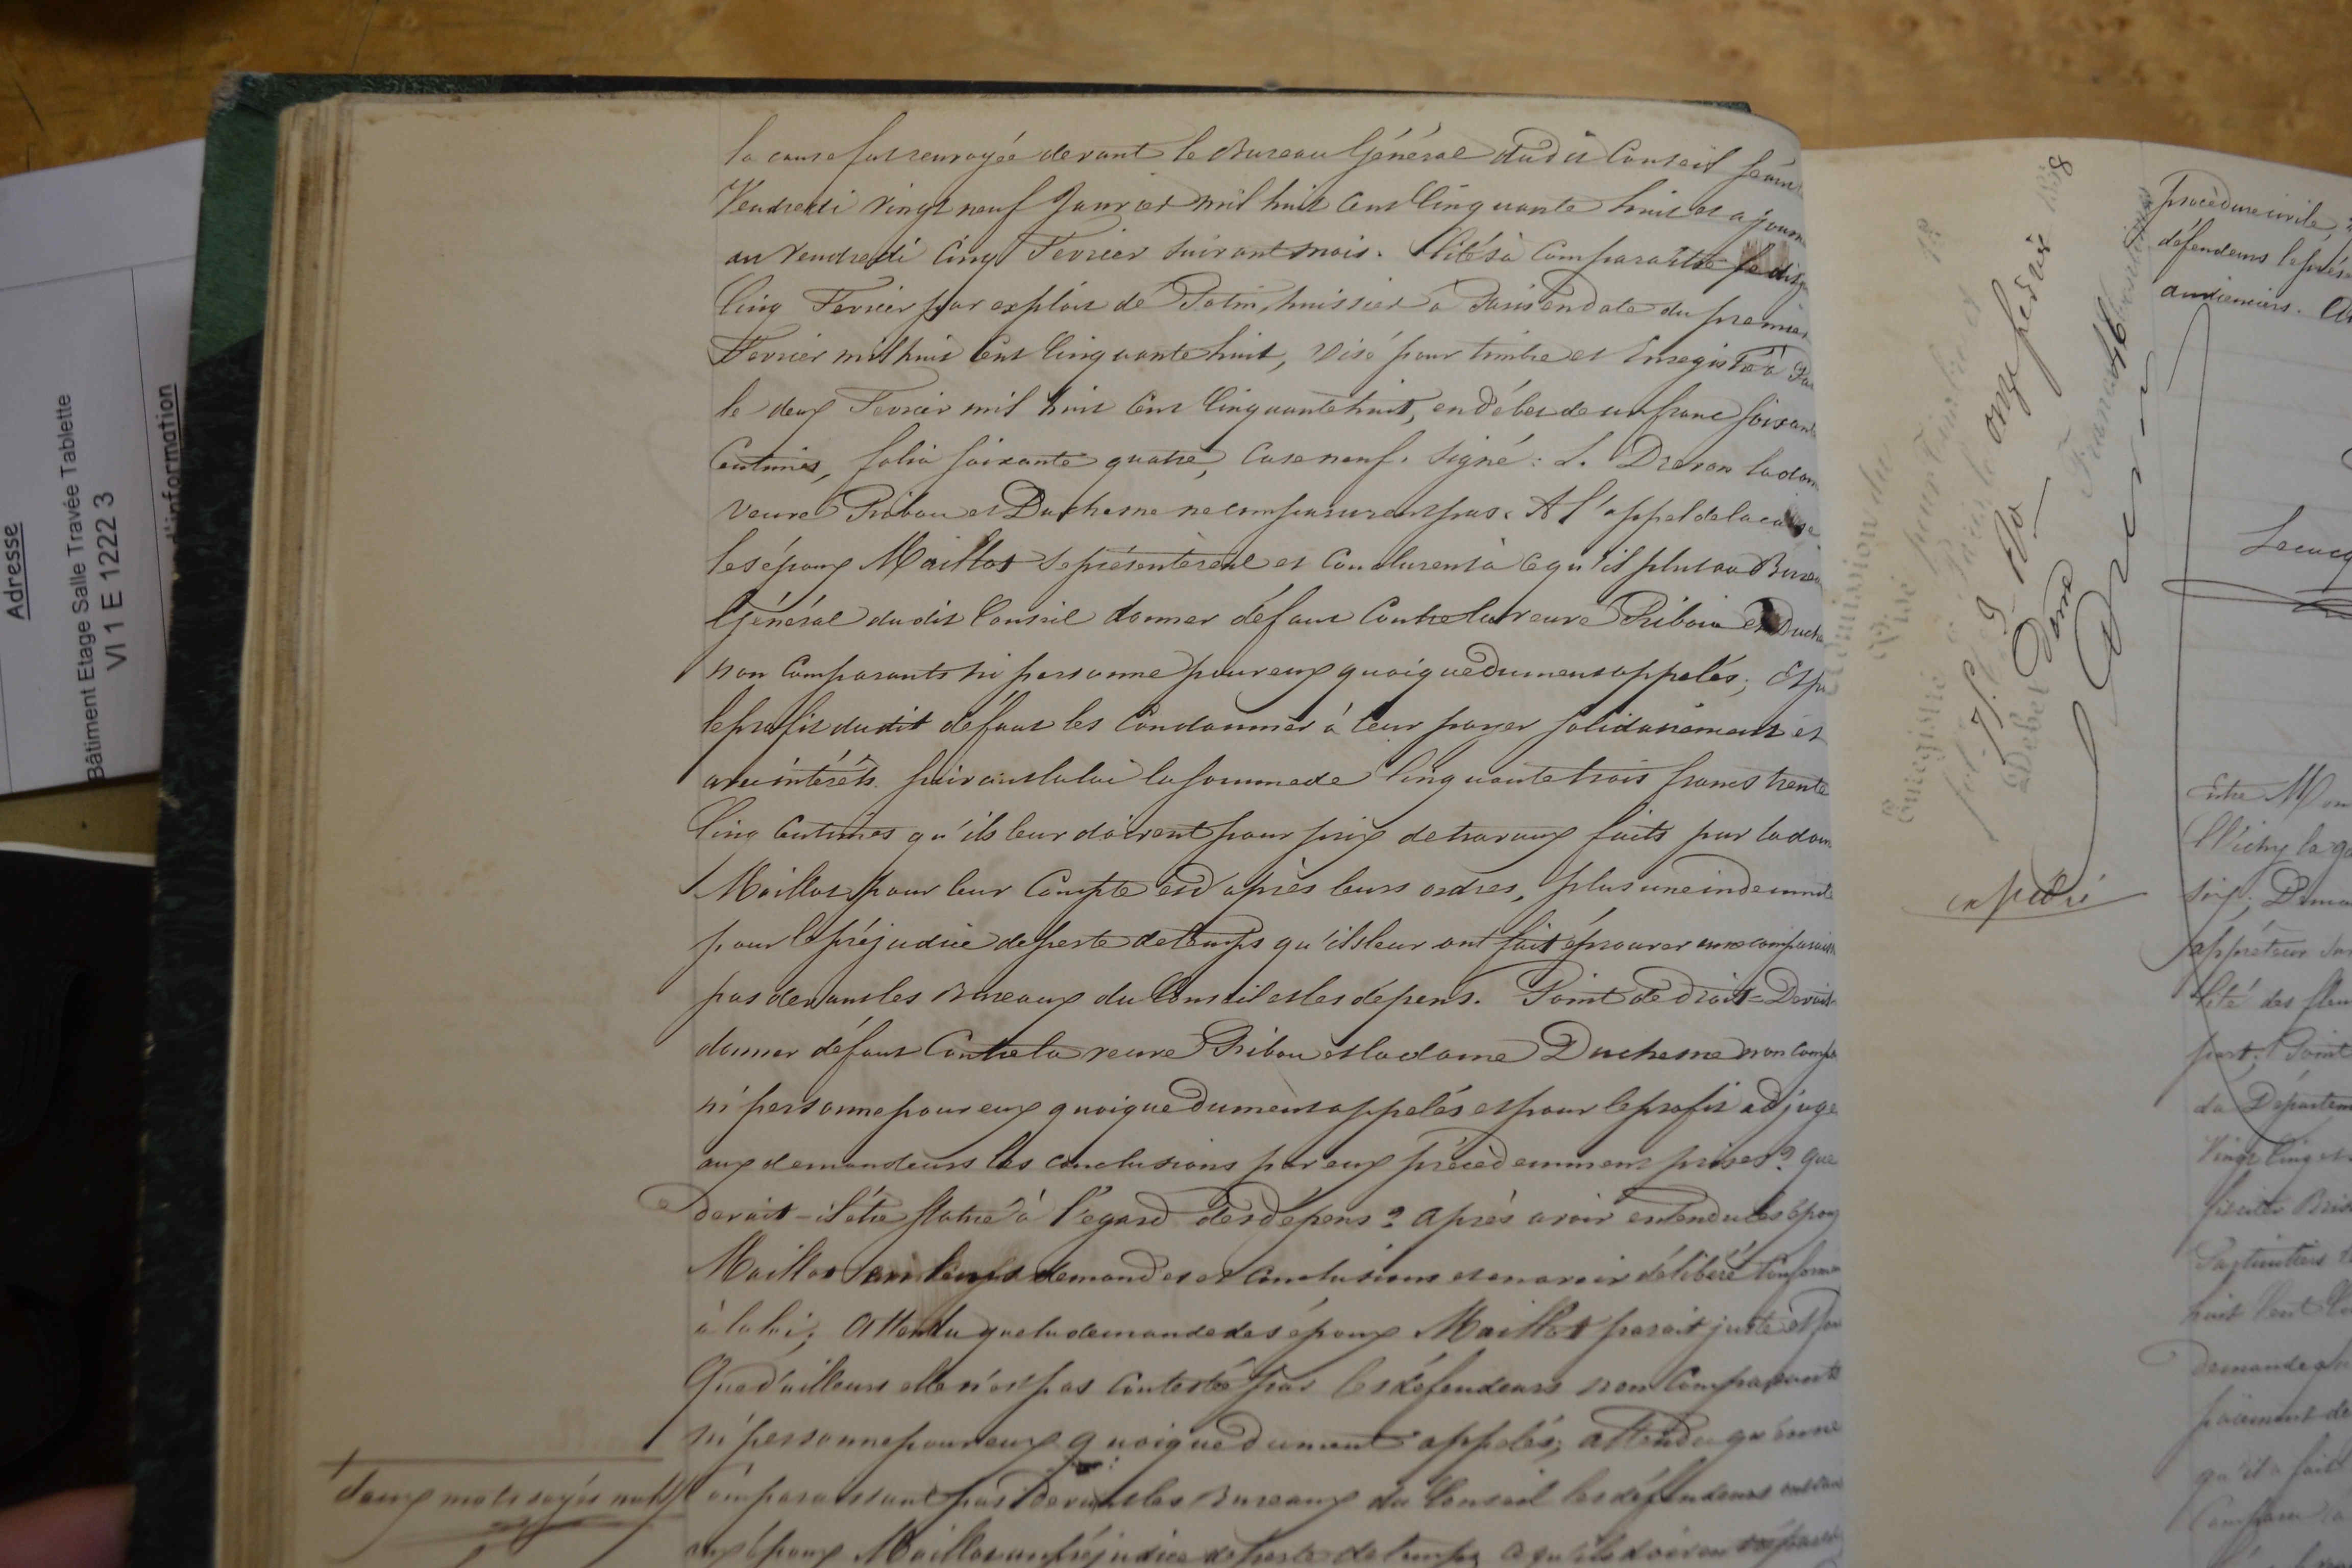 Adresse
Bâtiment Etage Salle Travée Tablette
VI 1 E 1222 3
d'information
la cause fut renvoyée devant le Bureau Général dudit Conseil séant
Vendredi vingt neuf Janvier mil huit cent cinquante huit et ajourn
au Vendredi cinq Fevrier suivant mois. Cités à comparaître
cinq Fevrier par exploit de Potin, huissier à Paris en date du premier
Fevrier mil huit cent cinquante huit, visé pour timbre et Enregistré à Pa
le deux Fevrier mil huit cent cinquante huit, en débet de un franc soixante
centimes, folio soixante quatre, case neuf. Signé: L. Dreron la dam
veuve Pribou et Duchesne ne comparurent pas. A l'appel de la cause
les époux Maillot se présentèrent et conclurent à ce qu'il plut au Bureau
Général dudit Conseil donner défaut contre la veuve Pribou et Duche
non comparants ni personne pour eux quoique dument appelés; Et po
le profit dudit défaut les condamner à leur payer solidairement et
avec intérêts suivant la loi la somme de cinquante trois francs trente
cinq centimes qu'ils leur doivent pour prix de travaux faits par la dam
Maillot pour leur compte et d'après leurs ordres, plus une indemnité
pour le préjudice de perte de temps qu'ils leur ont fait éprouver en ne comparaiss
pas devant les Bureaux du Conseil et les dépens. Point de droit = Devait
donner défaut contre la veuve Pribou et la dame Duchesne non compa
ni personne pour eux quoique dument appelés et pour le profit adjuger
aux demandeurs les conclusions par eux précédemment prises? Que
devait-il être statué à l'égard des dépens? Après avoir entendu les époux
Maillot en leurs demandes et conclusions et en avoir délibéré conformém
à la loi; Attendu que la demande des époux Maillot parait juste et fon
Que d'ailleurs elle n'est pas contestée par les défendeurs non comparants
ni personne pour eux quoique dument appelés; attendu qu'en ne
comparaissant pas devant les Bureaux du Conseil les défendeurs ont
aux époux Maillot un préjudice de perte de temps qu'ils doivent réparer
deux mots rayés nuls
Visé pour Timbre et
Enregistré à Paris le onze février 1858
Débet
expédié
procédure civile,
défendeurs le prés
audienciers.
Lecucq
Entre Mon
Clichy la ga
six; Deman
apprêteur
lité des fleu
part; Point
du Départem
Vingt cinq
huit cent
Demande
paiement de
qu'il a fait